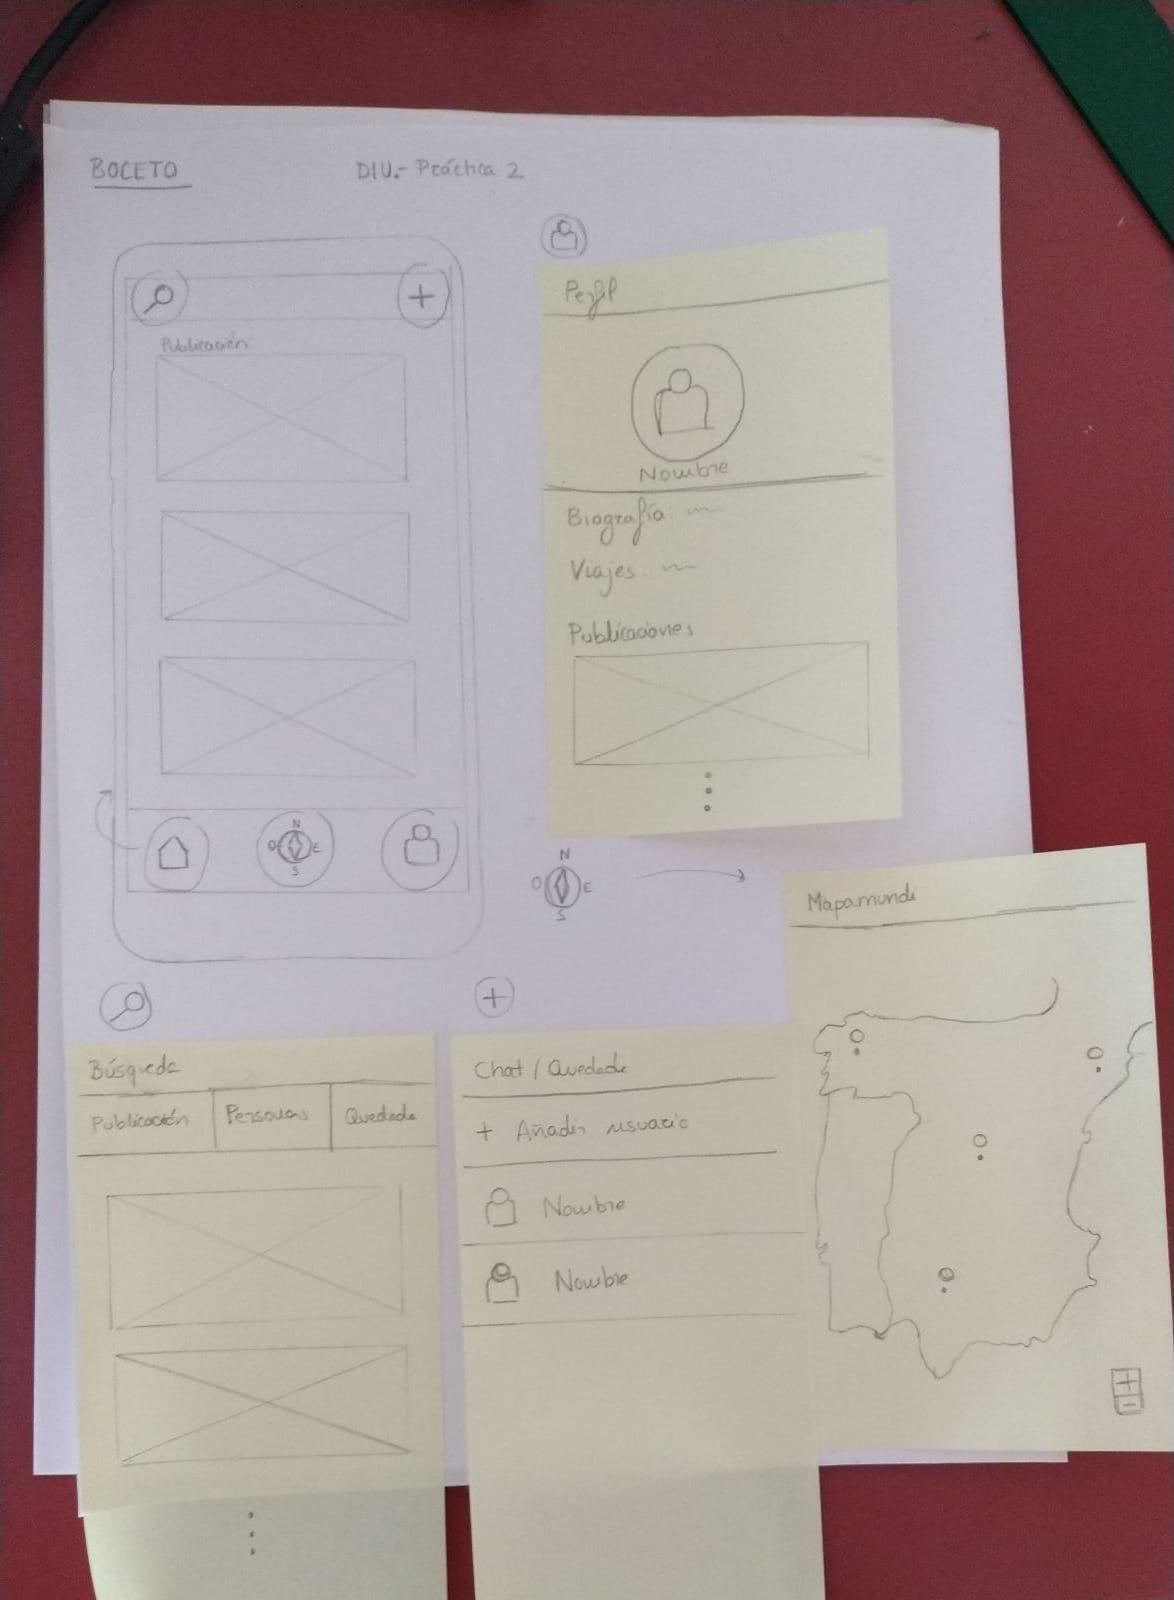 BOCETO
DIU.- Práctica 2
Publicación:
N
O E
S
Perfil
Nombre
Biografía:
Viajes:
Publicaciones
N
O E
S
Mapamundi
Búsqueda
Publicación Personas Quedada
Chat / Quedada
+ Añadir usuario
Nombre
Nombre
+
-